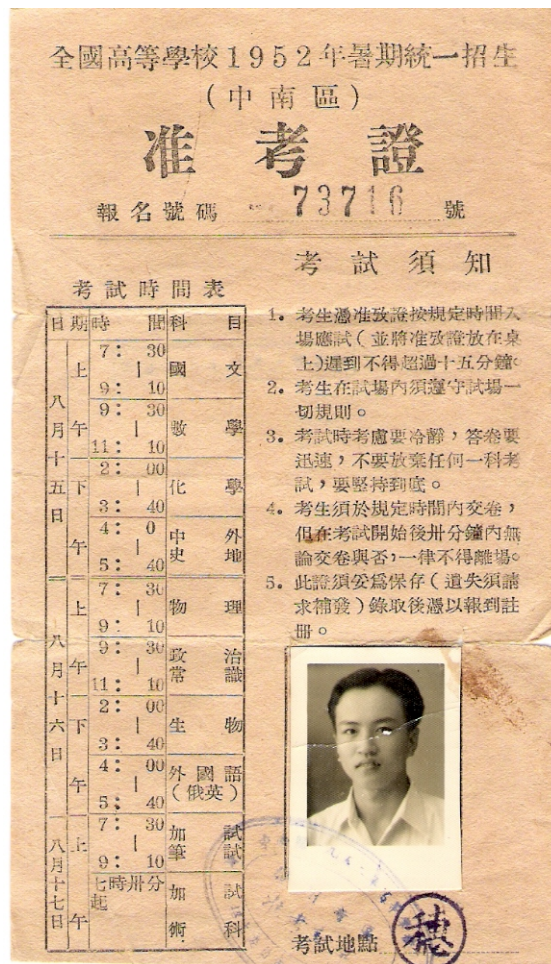 全國高等學校1952年暑期統一招生
(中南區)
准考證
報名號碼 73716 號
考試時間表
日期 時間 科目
八月十五日
上午
7:30—9:10 國文
9:30—11:10 數學
下午
2:00—3:40 化學
4:0—5:40 中外史地
八月十六日
上午
7:30—9:10 物理
9:30—11:10 政治常識
下午
2:00—3:40 生物
4:00—5:40 外國語(俄英)
八月十七日
上午
7:30—9:10 加試筆試
七時卅分起 加試術科
考試須知
1. 考生憑准攷證按規定時間入
場應試(並將准攷證放在桌
上)遲到不得超過十五分鐘。
2. 考生在試場內須遵守試場一
切規則。
3. 考試時考慮要冷靜,答卷要
迅速,不要放棄任何一科考
試,要堅持到底。
4. 考生須於規定時間內交卷,
但在考試開始後卅分鐘內無
論交卷與否,一律不得離場。
5. 此證須妥爲保存(遺失須請
求補發)錄取後憑以報到註
冊。
考試地點 穗